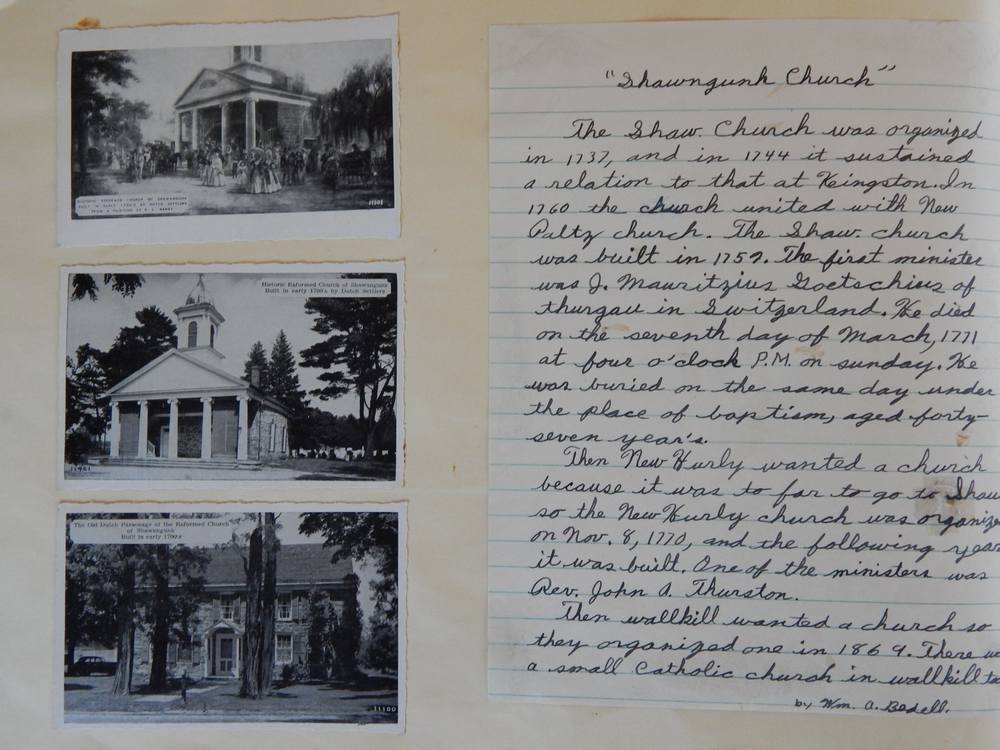 HISTORIC REFORMED CHURCH OF SHAWANGUNK
BUILT IN EARLY 1700'S BY DUTCH SETTLERS
FROM A PAINTING BY E. L. HENRY
11102
Historic Reformed Church of Shawangunk
Built in early 1700's by Dutch Settlers
11101
The Old Dutch Parsonage of the Reformed Church
of Shawangunk
Built in early 1700's
11100
"Shawngunk Church"
The Shaw. Church was organized
in 1737, and in 1744 it sustained
a relation to that at Keingston. In
1760 the church united with New
Paltz church. The Shaw. church
was built in 1752. The first minister
was J. Mauritzius Goetschius of
thurgau in Switzerland. He died
on the seventh day of March, 1771
at four o'clock P.M. on sunday. He
was buried on the same day under
the place of baptism, aged forty-
seven year's.
Then New Hurly wanted a church
because it was to far to go to Shaw
so the New Hurly church was organize
on Nov. 8, 1770, and the following year
it was built. One of the ministers was
Rev. John A. Thurston.
Then wallkill wanted a church so
they organized one in 1869. There w
a small Catholic church in wallkill to
by Wm. A. Bedell.